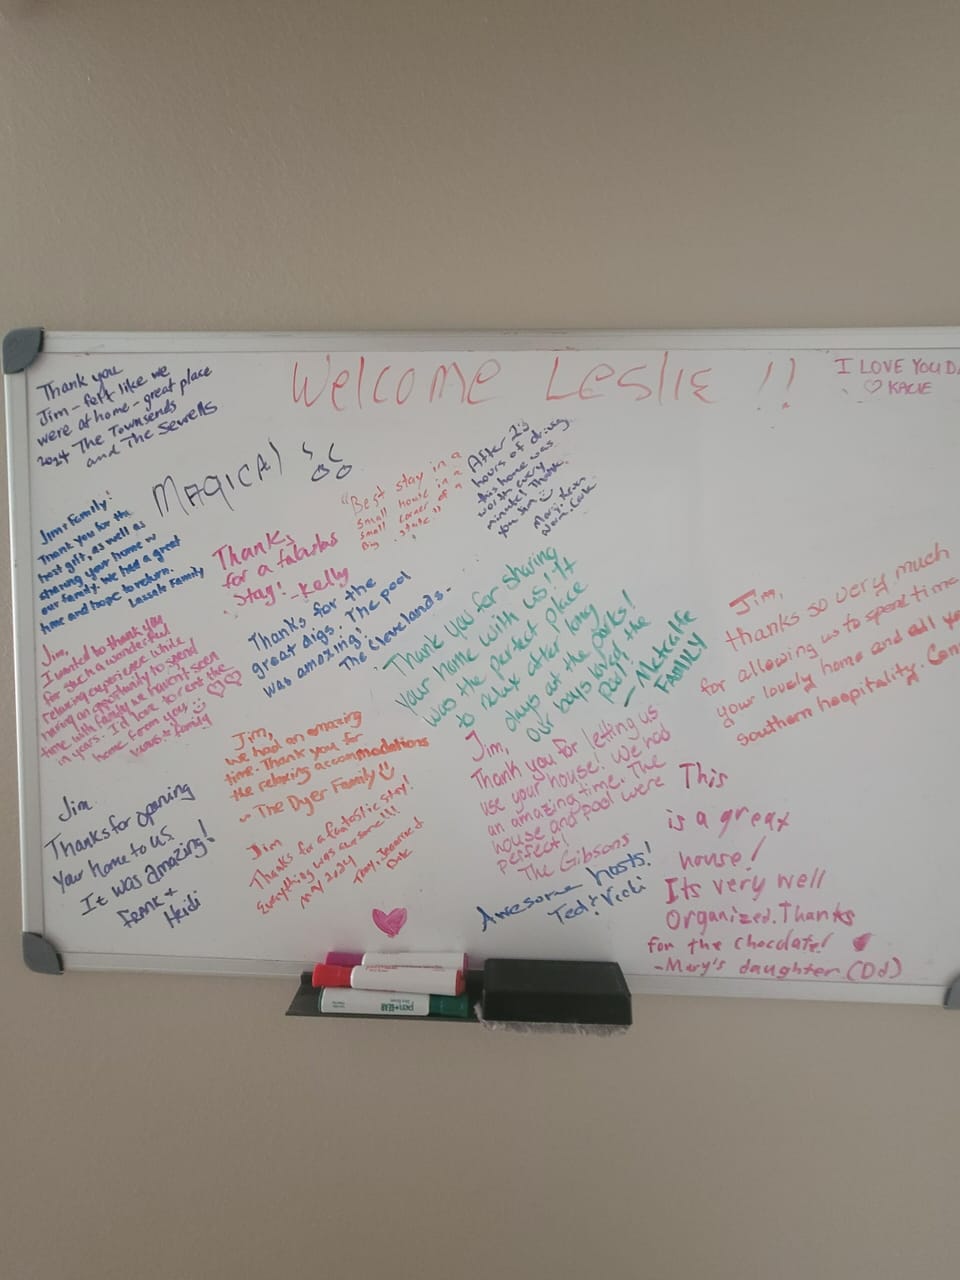 Welcome Leslie !!
I LOVE YOU DA
♡ KACIE
Thank you
Jim - felt like we
were at home - great place
2024 The Townsends
and The Sewells
MAGICAL
"Best stay in a
small house in a
small corner of a
Big state"
After 23
hours of driving
this home was
worth every
minute! Thank
you Jim
Jim & Family!
Thank you for the
host gift, as well as
sharing your home w
our family. We had a great
time and hope to return.
Lassale Family
Thanks
for a fabulous
stay! - Kelly
Thanks for the
great digs. The pool
was amazing!
The Clevelands-
Thank you for sharing
your home with us! It
was the perfect place
to relax after long
days at the parks!
Our boys loved the
pool!
- Metcalfe
FAMILY
Jim,
thanks so very much
for allowing us to spend time
your lovely home and all yo
southern hospitality.
Jim,
I wanted to thank you
for such a wonderful
relaxing experience while
having an opportunity to spend
time with family we haven't seen
in years. I'd love to rent the
home from you
& family
Jim,
we had an amazing
time. Thank you for
the relaxing accommodations
~ The Dyer Family
Jim,
Thank you for letting us
use your house! We had
an amazing time. The
house and pool were
perfect!
The Gibsons
Jim
Thanks for opening
Your home to us.
It was amazing!
Frank +
Heidi
Jim
Thanks for a fantastic stay!
Everything was awesome!!!
MAY 2024
Awesome hosts!
Ted & Vicki
This
is a great
house!
Its very well
Organized. Thanks
for the chocolate!
-Mary's daughter (Dd)
pen+GEAR